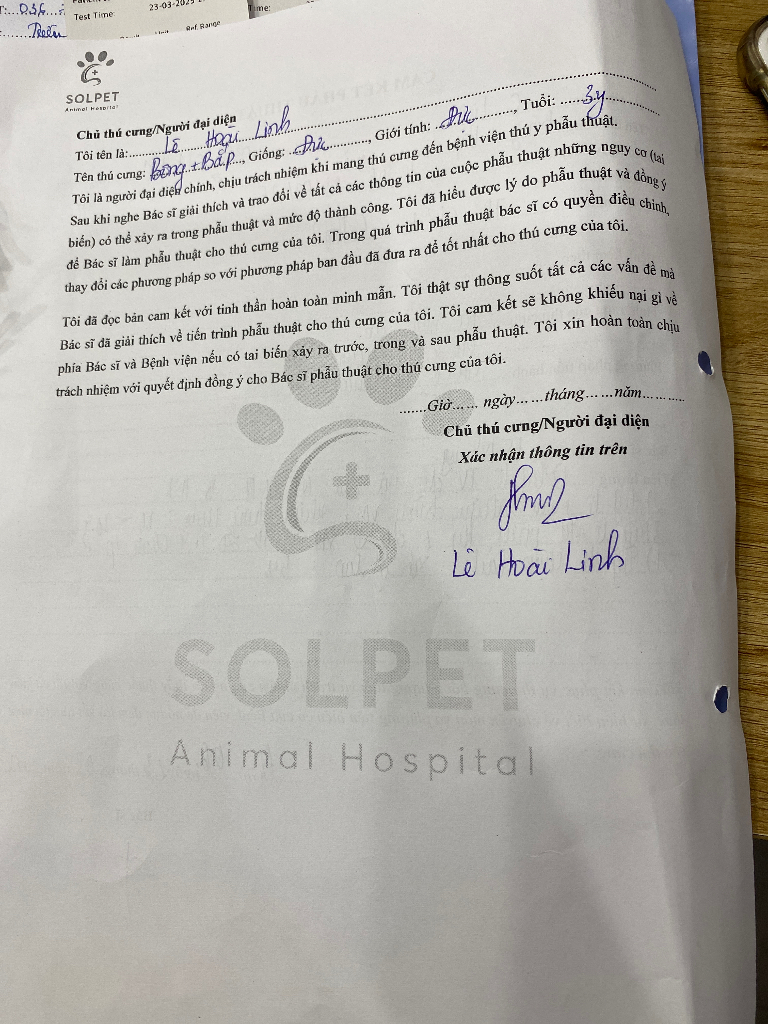 T:...036
Test Time:
23-03-202
Time:
Ref. Range
SOLPET
Animal Hospital
Chủ thú cưng/Người đại diện
Tôi tên là: Lê Hoài Linh
Tên thú cưng: Bông + Bắp, Giống: Đực, Giới tính: Đực, Tuổi: 3y
Tôi là người đại diện chính, chịu trách nhiệm khi mang thú cưng đến bệnh viện thú y phẫu thuật.
Sau khi nghe Bác sĩ giải thích và trao đổi về tất cả các thông tin của cuộc phẫu thuật những nguy cơ (tai
biến) có thể xảy ra trong phẫu thuật và mức độ thành công. Tôi đã hiểu được lý do phẫu thuật và đồng ý
để Bác sĩ làm phẫu thuật cho thú cưng của tôi. Trong quá trình phẫu thuật bác sĩ có quyền điều chỉnh,
thay đổi các phương pháp so với phương pháp ban đầu đã đưa ra để tốt nhất cho thú cưng của tôi.
Tôi đã đọc bản cam kết với tinh thần hoàn toàn minh mẫn. Tôi thật sự thông suốt tất cả các vấn đề mà
Bác sĩ đã giải thích về tiến trình phẫu thuật cho thú cưng của tôi. Tôi cam kết sẽ không khiếu nại gì về
phía Bác sĩ và Bệnh viện nếu có tai biến xảy ra trước, trong và sau phẫu thuật. Tôi xin hoàn toàn chịu
trách nhiệm với quyết định đồng ý cho Bác sĩ phẫu thuật cho thú cưng của tôi.
.......Giờ...... ngày......tháng......năm...........
Chủ thú cưng/Người đại diện
Xác nhận thông tin trên
Lê Hoài Linh
SOLPET
Animal Hospital